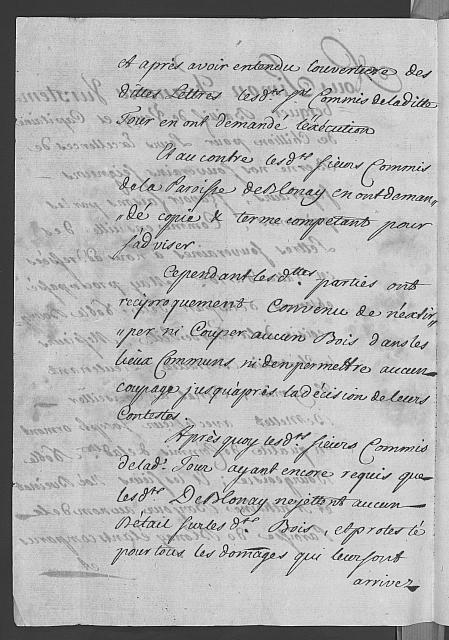 Et après avoir entendu l'ouverture des
dittes Lettres les d.ts Srs Commis de la ditte
Tour en ont demandé l'exécution
Et au contre les d.ts sieurs Commis
de la Paroisse de Blonay en ont deman„
„dé copie & terme competant pour
s'adviser
Cependant les d.ttes parties ont
reciproquement Convenu de n'extir„
„per ni Couper aucun Bois dans les
lieux Communs ni d'en permettre aucun
coupage jusqu'après la décision de leurs
Contestes.
Après quoy les d.ts sieurs Commis
de lad.e Tour ayant encore requis que
les d.ts De Blonay ne jettent aucun
Bétail sur les d.ts Bois, et protesté
pour tous les domages qui leur sont
arrivez